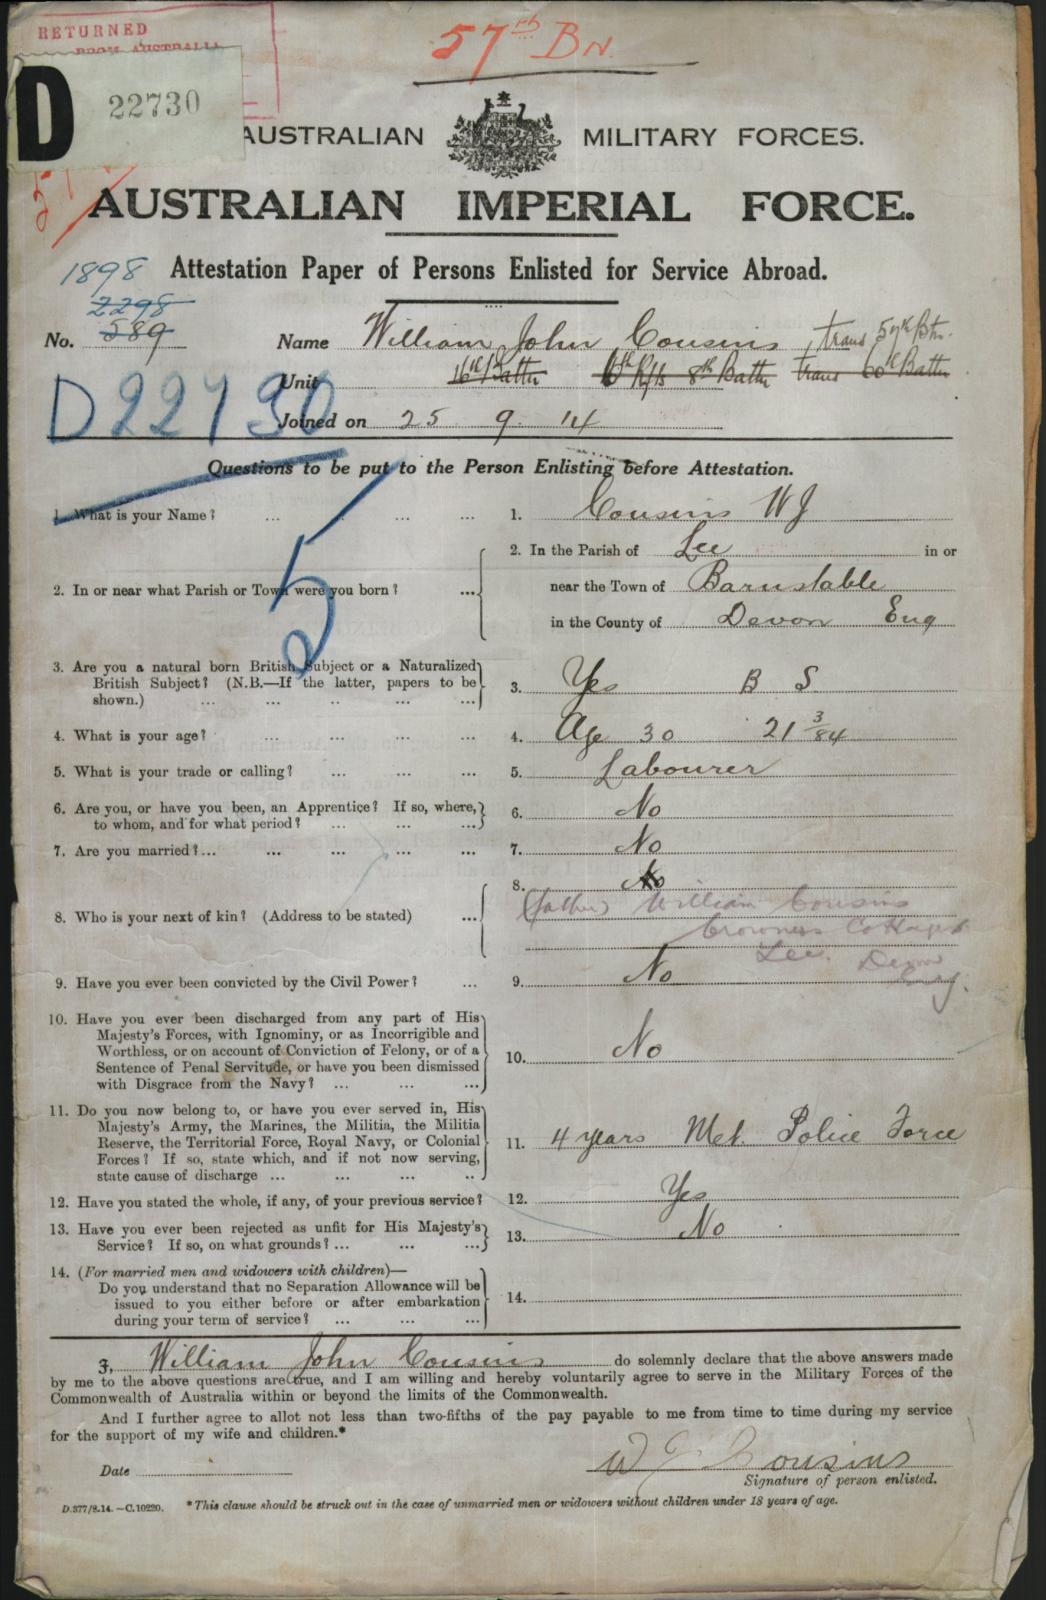 RETURNED
FROM AUSTRALIA
57th Bn.
D 22730
AUSTRALIAN MILITARY FORCES.
AUSTRALIAN IMPERIAL FORCE.
Attestation Paper of Persons Enlisted for Service Abroad.
1898
2298
No. 589 Name William John Cousins trans 57th Btn.
Unit 16th Battn 6th Rfts 8th Battn trans 60th Battn
D22730
Joined on 25 9. 14
Questions to be put to the Person Enlisting before Attestation.
5
1. What is your Name? ... ... ... 1. Cousins W J
2. In or near what Parish or Town were you born? ... 2. In the Parish of Lee in or
near the Town of Barnstable
in the County of Devon Eng
3. Are you a natural born British Subject or a Naturalized
British Subject? (N.B.—If the latter, papers to be
shown.) ... ... .. ... ... 3. Yes B S
4. What is your age? ... ... ... ... 4. Age 30 21 3/84
5. What is your trade or calling? ... ... ... 5. Labourer
6. Are you, or have you been, an Apprentice? If so, where,
to whom, and for what period? ... ... ... 6. No
7. Are you married? ... ... ... ... ... 7. No
8. Who is your next of kin? (Address to be stated) ... 8. No
(father) William Cousins
Cottages
Lee. Devon
9. Have you ever been convicted by the Civil Power? ... 9. No
10. Have you ever been discharged from any part of His
Majesty's Forces, with Ignominy, or as Incorrigible and
Worthless, or on account of Conviction of Felony, or of a
Sentence of Penal Servitude, or have you been dismissed
with Disgrace from the Navy? ... ... ... 10. No
11. Do you now belong to, or have you ever served in, His
Majesty's Army, the Marines, the Militia, the Militia
Reserve, the Territorial Force, Royal Navy, or Colonial
Forces? If so, state which, and if not now serving,
state cause of discharge ... ... ... .. 11. 4 years Met. Police Force
12. Have you stated the whole, if any, of your previous service? 12. Yes
13. Have you ever been rejected as unfit for His Majesty's
Service? If so, on what grounds? ... ... ... 13. No
14. (For married men and widowers with children)—
Do you understand that no Separation Allowance will be
issued to you either before or after embarkation
during your term of service? ... ... ... 14.
I, William John Cousins do solemnly declare that the above answers made
by me to the above questions are true, and I am willing and hereby voluntarily agree to serve in the Military Forces of the
Commonwealth of Australia within or beyond the limits of the Commonwealth.
And I further agree to allot not less than two-fifths of the pay payable to me from time to time during my service
for the support of my wife and children.*
W J Cousins
Date Signature of person enlisted.
D.377/8.14.—C.10220. * This clause should be struck out in the case of unmarried men or widowers without children under 18 years of age.